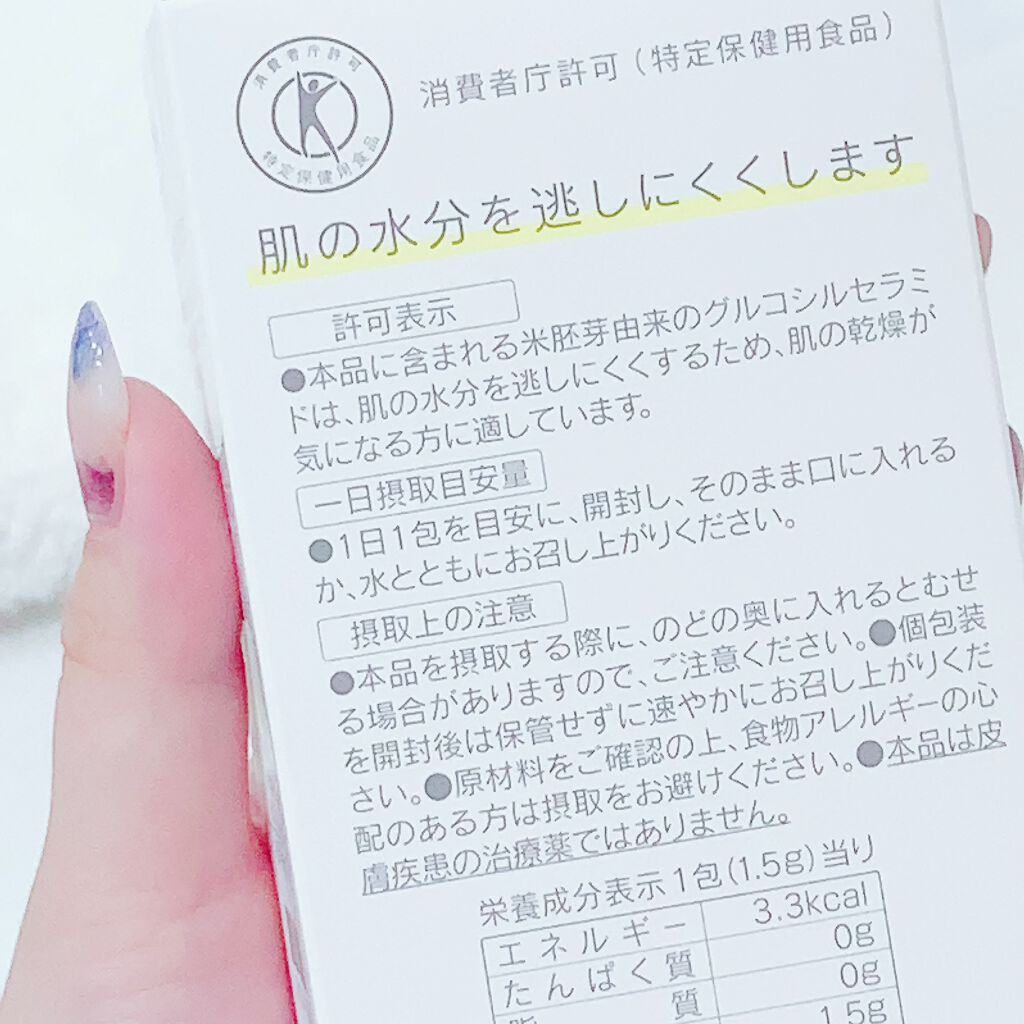 消費者庁許可
特定保健用食品
消費者庁許可（特定保健用食品）
肌の水分を逃しにくくします
許可表示
●本品に含まれる米胚芽由来のグルコシルセラミ
ドは、肌の水分を逃しにくくするため、肌の乾燥が
気になる方に適しています。
一日摂取目安量
●1日1包を目安に、開封し、そのまま口に入れる
か、水とともにお召し上がりください。
摂取上の注意
●本品を摂取する際に、のどの奥に入れるとむせ
る場合がありますので、ご注意ください。●個包装
を開封後は保管せずに速やかにお召し上がりくだ
さい。●原材料をご確認の上、食物アレルギーの心
配のある方は摂取をお避けください。●本品は皮
膚疾患の治療薬ではありません。
栄養成分表示1包(1.5g)当り
エネルギー 3.3kcal
たんぱく質 0g
脂質 0g
1.5g